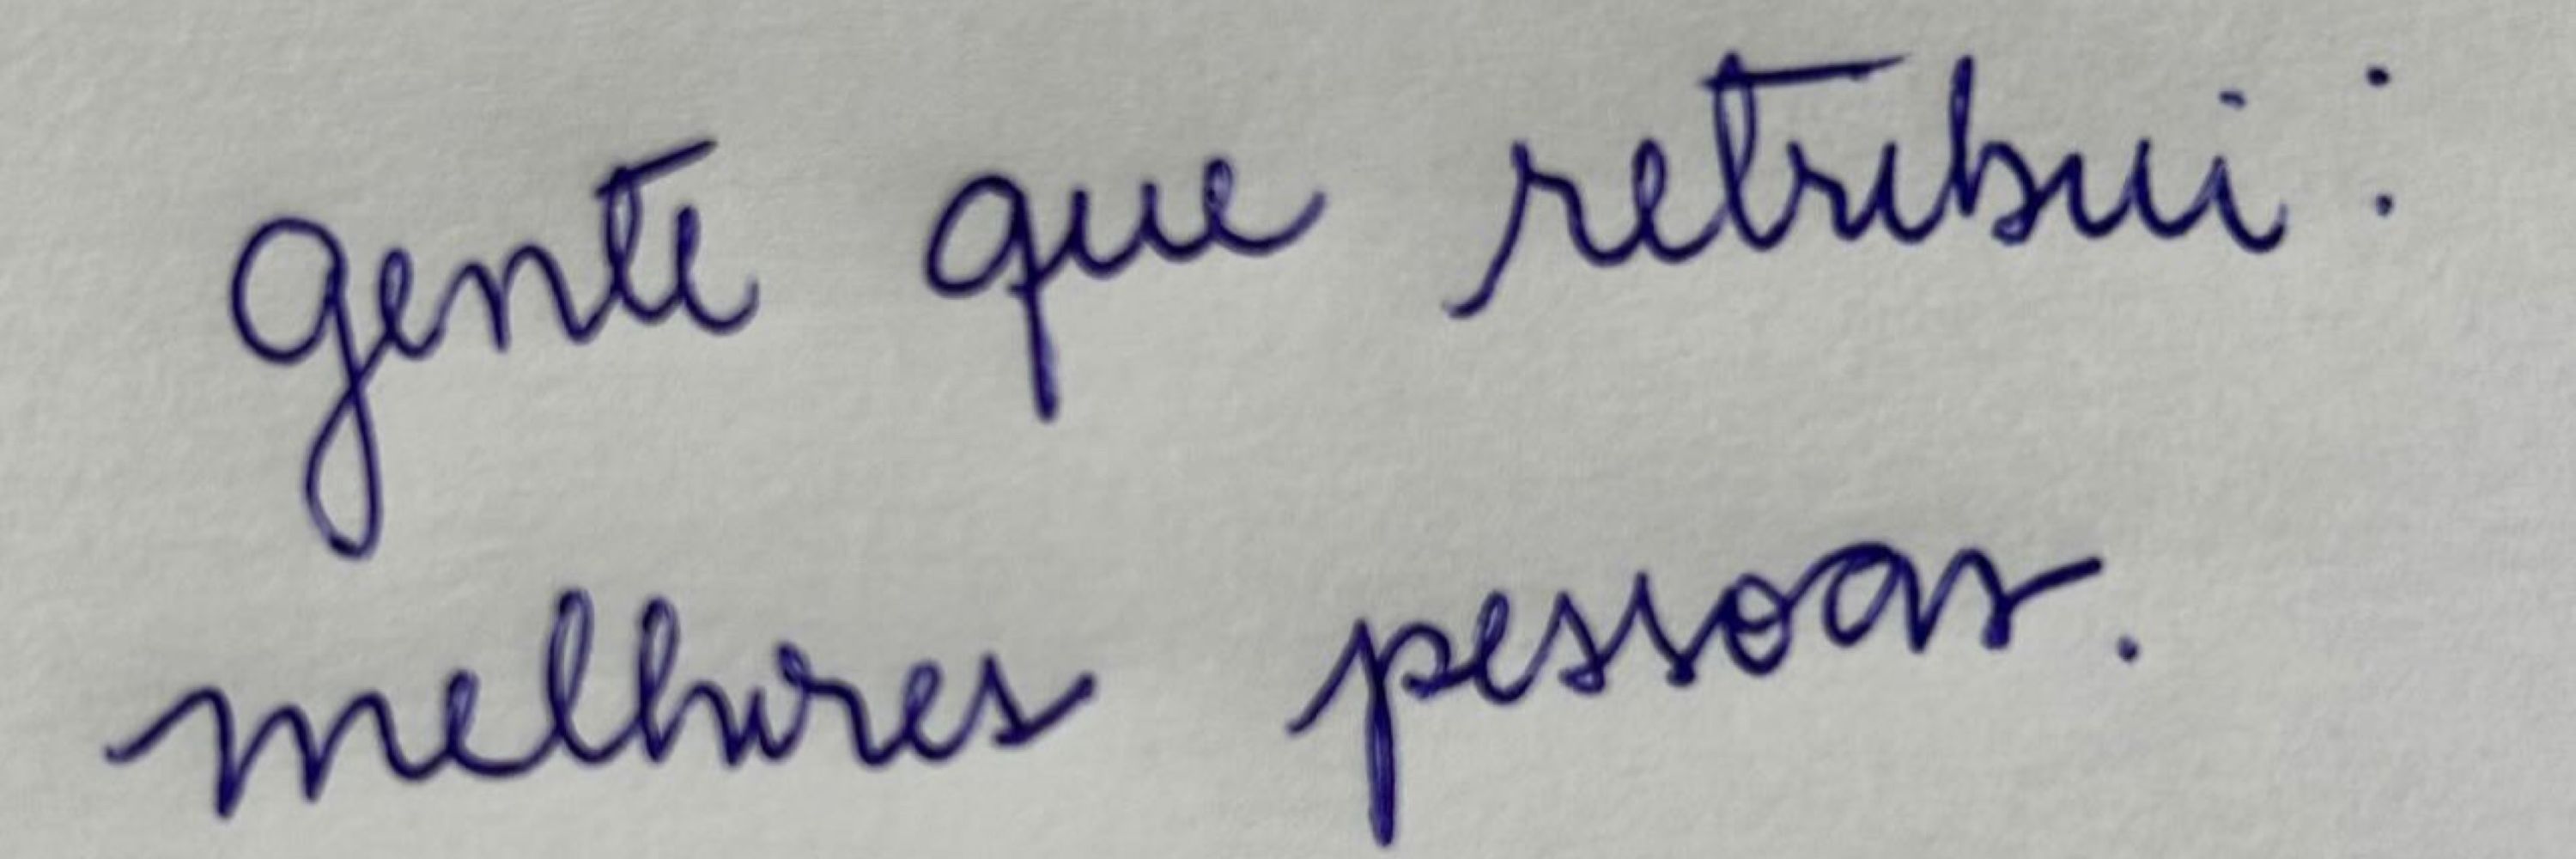 gente que retribui:
melhores pessoas.